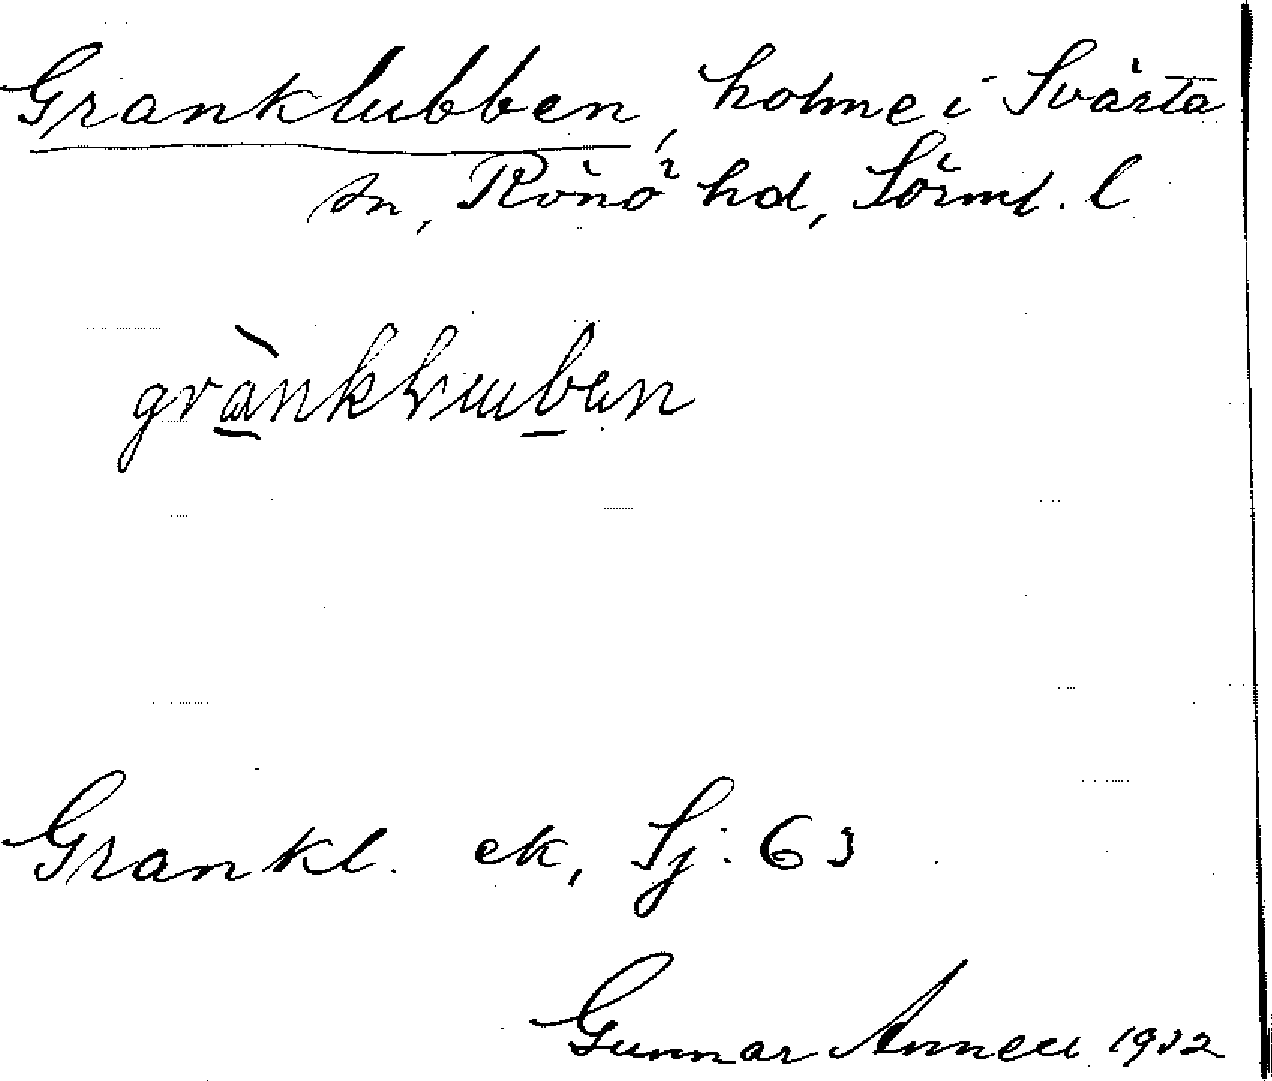 Granklubben, holme i Svärta
sn, Rönö hd, Sörml. l
grànkluben
Grankl. ek, Sj. 63
Gunnar Annell 1932